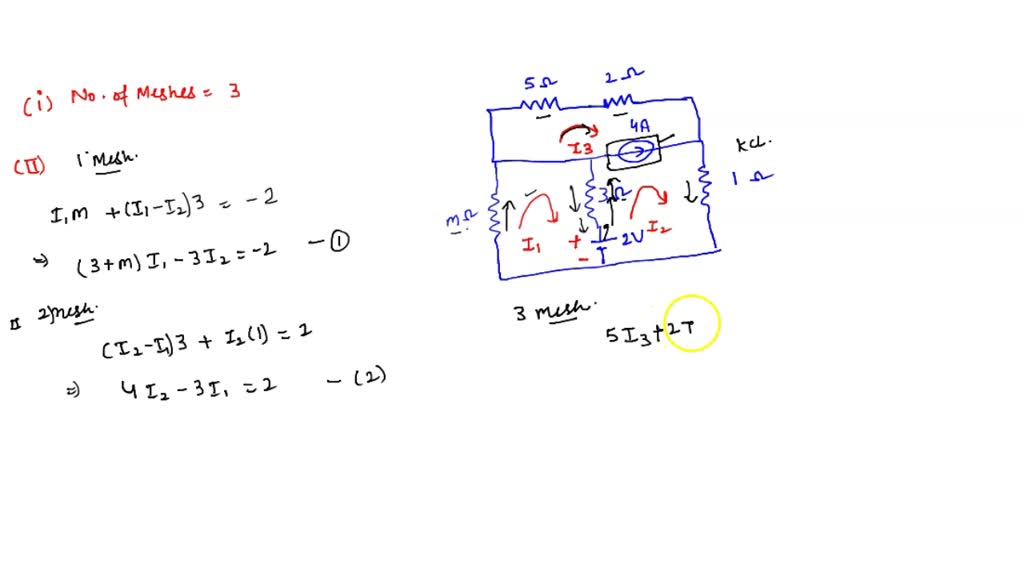 (i) No. of Meshes = 3
(II) 1 Mesh.
I₁m + (I₁-I₂)3 = -2
⇒ (3+m)I₁ - 3I₂ = -2 - ①
II 2) Mesh.
(I₂-I₁)3 + I₂(1) = 2
⇒ 4I₂ - 3I₁ = 2 - (2)
5Ω 2Ω
I3 4A
KCL.
mΩ 3Ω 1Ω
I₁ + - 2V I₂
3 mesh.
5I₃ + 2I